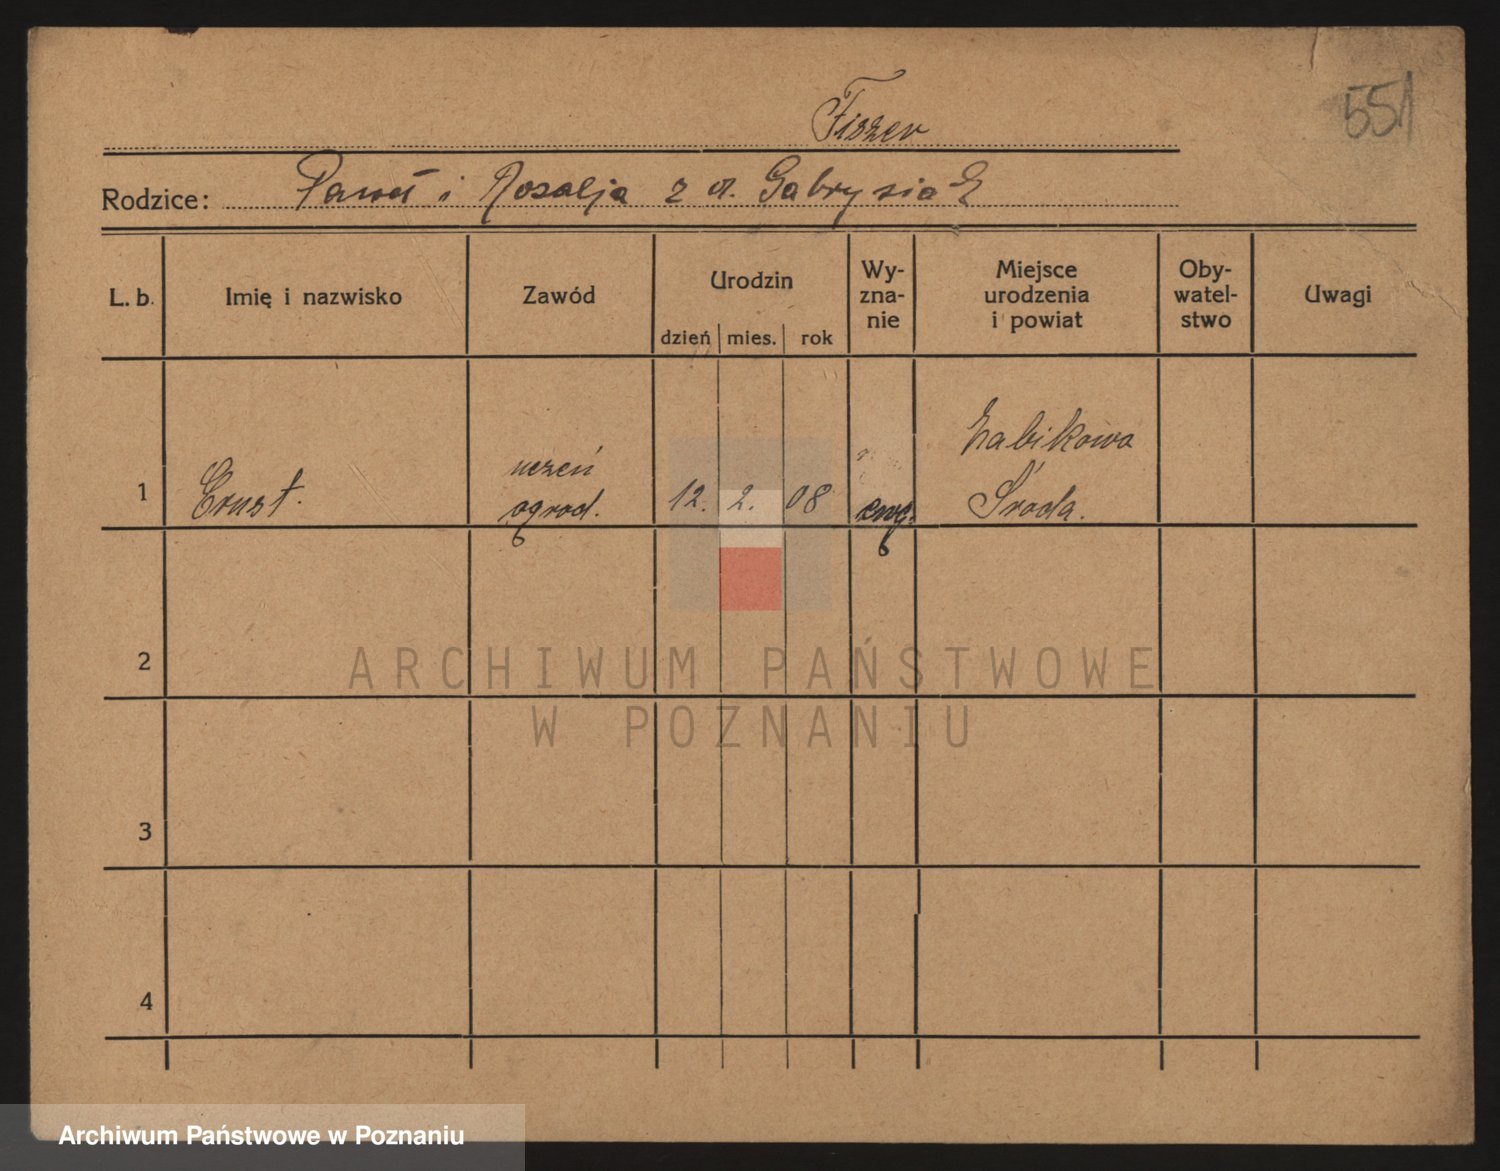 551
Fiszer
Rodzice: Paweł i Rosalja z d. Gabrysiak
L. b. Imię i nazwisko Zawód Urodzin Wy-zna-nie Miejsce urodzenia i powiat Oby-watel-stwo Uwagi
dzień mies. rok
1 Ernst. uczeń ogrod. 12. 2. 08 ewg. Żabikowo Środa.
2
3
4
ARCHIWUM PAŃSTWOWE
W POZNANIU
Archiwum Państwowe w Poznaniu